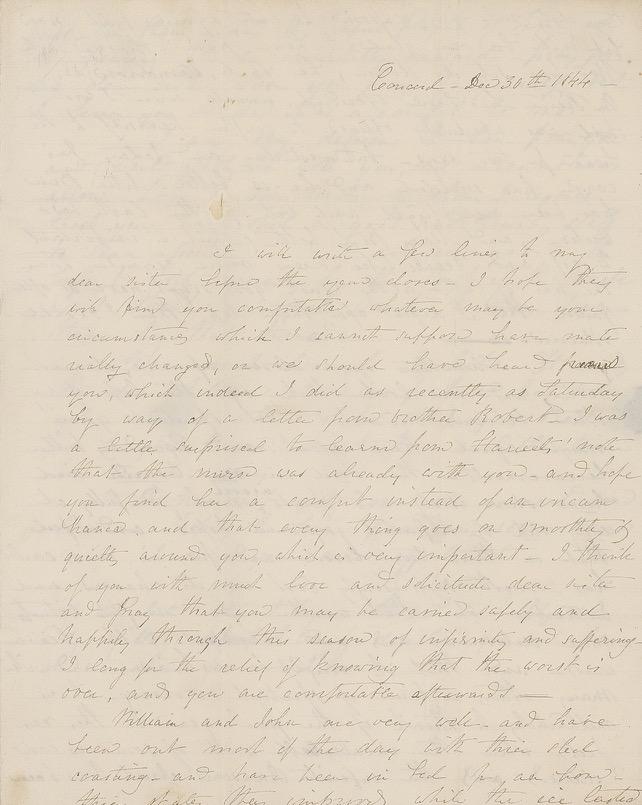 Concord - Dec 30th 1844 -
I will with a few lines to my
dear sister before the year closes - I hope they
will find you comfortable whatever may be your
circumstances which I cannot suppose have mate
rially changed, or we should have heard from
you, which indeed I did as recently as Saturday
by way of a letter from brother Robert - I was
a little surprised to learn from Harriets' note
that the nurse was already with you - and hope
you find her a comfort instead of an incum
brance. and that every thing goes on smoothly &
quietly around you, which is very important - I think
of you with much love and solicitude dear sister
and pray that you may be carried safely and
happily through this season of infirmity and suffering -
I long for the relief of knowing that the worst is
over, and you are comfortable afterwards -
William and John are very well - and have
been out most of the day with their sled
coasting - and have been in bed for an hour -
their skates they improved while the ice lasted